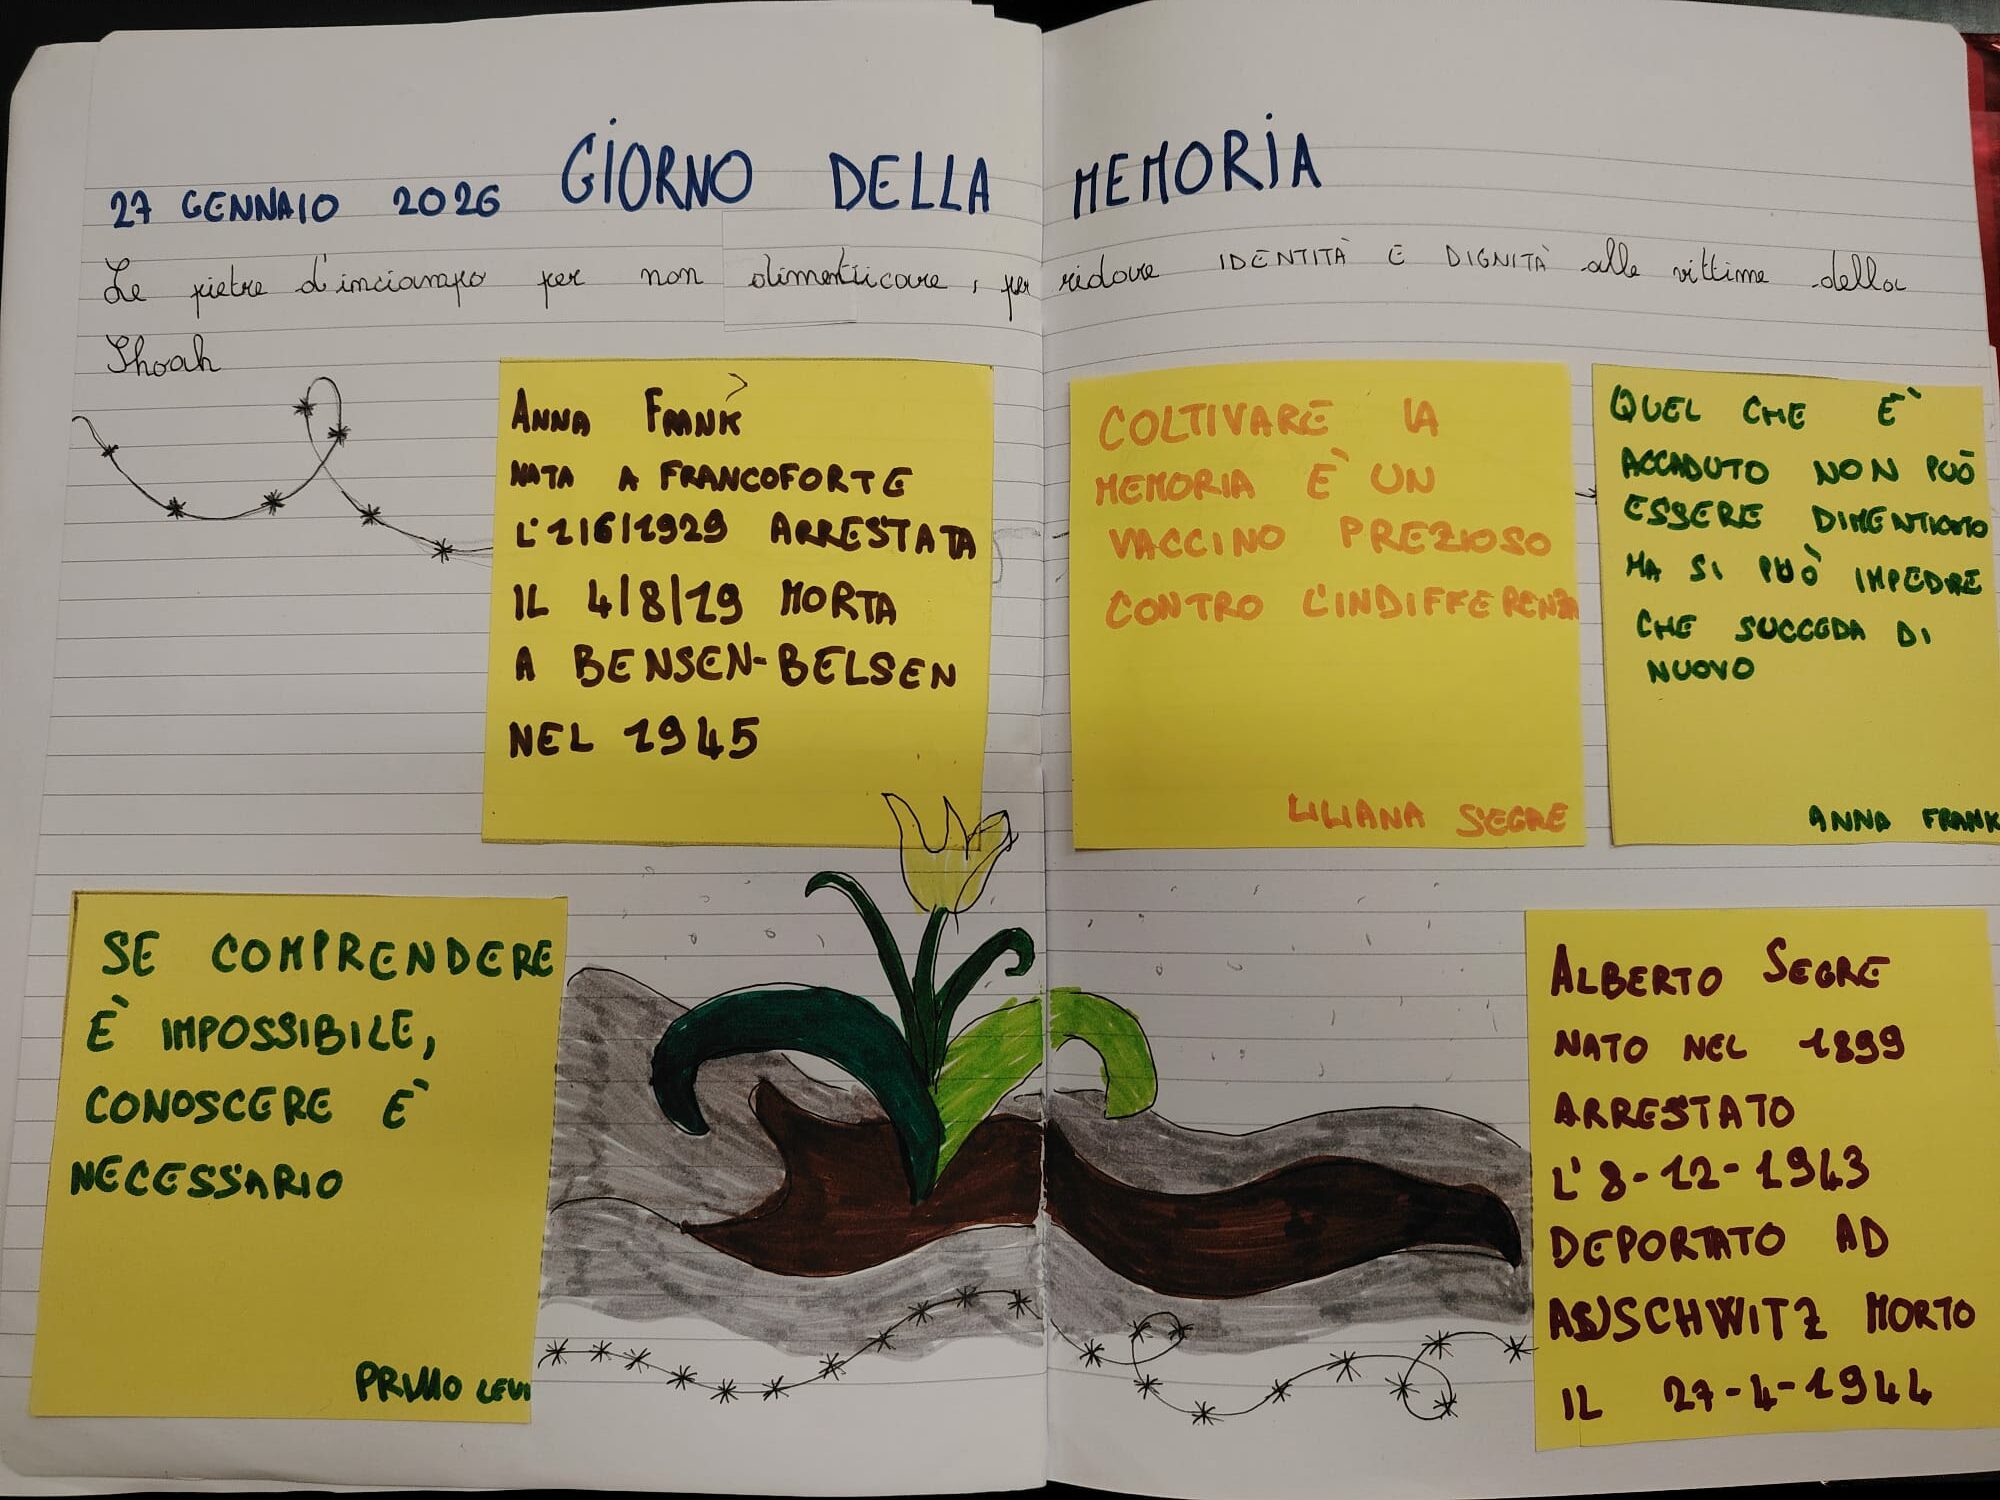 27 GENNAIO 2026 GIORNO DELLA MEMORIA
Le pietre d'inciampo per non dimenticare, per ridare IDENTITÀ E DIGNITÀ alle vittime della
Shoah
ANNA FRANK
NATA A FRANCOFORTE
L'1/6/1929 ARRESTATA
IL 4/8/19 MORTA
A BENSEN-BELSEN
NEL 1945
COLTIVARE LA
MEMORIA È UN
VACCINO PREZIOSO
CONTRO L'INDIFFERENZA
LILIANA SEGRE
QUEL CHE È
ACCADUTO NON PUÒ
ESSERE DIMENTICATO
MA SI PUÒ IMPEDIRE
CHE SUCCEDA DI
NUOVO
ANNA FRANK
SE COMPRENDERE
È IMPOSSIBILE,
CONOSCERE È
NECESSARIO
PRIMO LEVI
ALBERTO SEGRE
NATO NEL 1899
ARRESTATO
L'8-12-1943
DEPORTATO AD
AUSCHWITZ MORTO
IL 27-4-1944